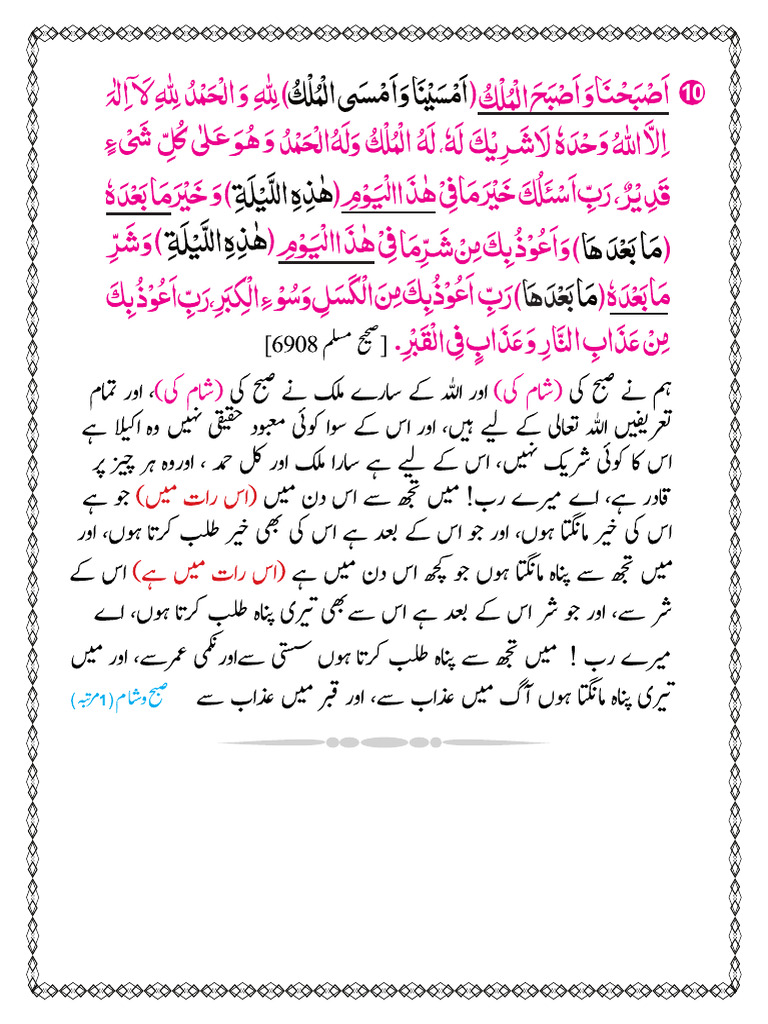 10 اَصْبَحْنَا وَ اَصْبَحَ الْمُلْكُ (اَمْسَيْنَا وَ اَمْسَى الْمُلْكُ) لِلّٰهِ وَ الْحَمْدُ لِلّٰهِ لَآ اِلٰهَ
اِلَّا اللّٰهُ وَحْدَهٗ لَا شَرِيْكَ لَهٗ، لَهُ الْمُلْكُ وَلَهُ الْحَمْدُ وَ هُوَ عَلٰى كُلِّ شَىْءٍ
قَدِيْرٌ، رَبِّ اَسْئَلُكَ خَيْرَ مَا فِىْ هٰذَا الْيَوْمِ (هٰذِهِ اللَّيْلَةِ) وَ خَيْرَ مَا بَعْدَهٗ
(مَا بَعْدَ هَا) وَ اَعُوْذُ بِكَ مِنْ شَرِّ مَا فِىْ هٰذَا الْيَوْمِ (هٰذِهِ اللَّيْلَةِ) وَ شَرِّ
مَا بَعْدَهٗ (مَا بَعْدَهَا) رَبِّ اَعُوْذُ بِكَ مِنَ الْكَسَلِ وَ سُوْءِ الْكِبَرِ، رَبِّ اَعُوْذُ بِكَ
مِنْ عَذَابِ النَّارِ وَ عَذَابٍ فِى الْقَبْرِ. [صحیح مسلم 6908]
ہم نے صبح کی (شام کی) اور اللہ کے سارے ملک نے صبح کی (شام کی)، اور تمام
تعریفیں اللہ تعالی کے لیے ہیں، اور اس کے سوا کوئی معبود حقیقی نہیں وہ اکیلا ہے
اس کا کوئی شریک نہیں، اس کے لیے ہے سارا ملک اور کل حمد ، اور وہ ہر چیز پر
قادر ہے، اے میرے رب! میں تجھ سے اس دن میں (اس رات میں) جو ہے
اس کی خیر مانگتا ہوں، اور جو اس کے بعد ہے اس کی بھی خیر طلب کرتا ہوں، اور
میں تجھ سے پناہ مانگتا ہوں جو کچھ اس دن میں ہے (اس رات میں ہے) اس کے
شر سے، اور جو شر اس کے بعد ہے اس سے بھی تیری پناہ طلب کرتا ہوں، اے
میرے رب ! میں تجھ سے پناہ طلب کرتا ہوں سستی سے اور نکمی عمر سے، اور میں
تیری پناہ مانگتا ہوں آگ میں عذاب سے، اور قبر میں عذاب سے صبح و شام (1 مرتبہ)